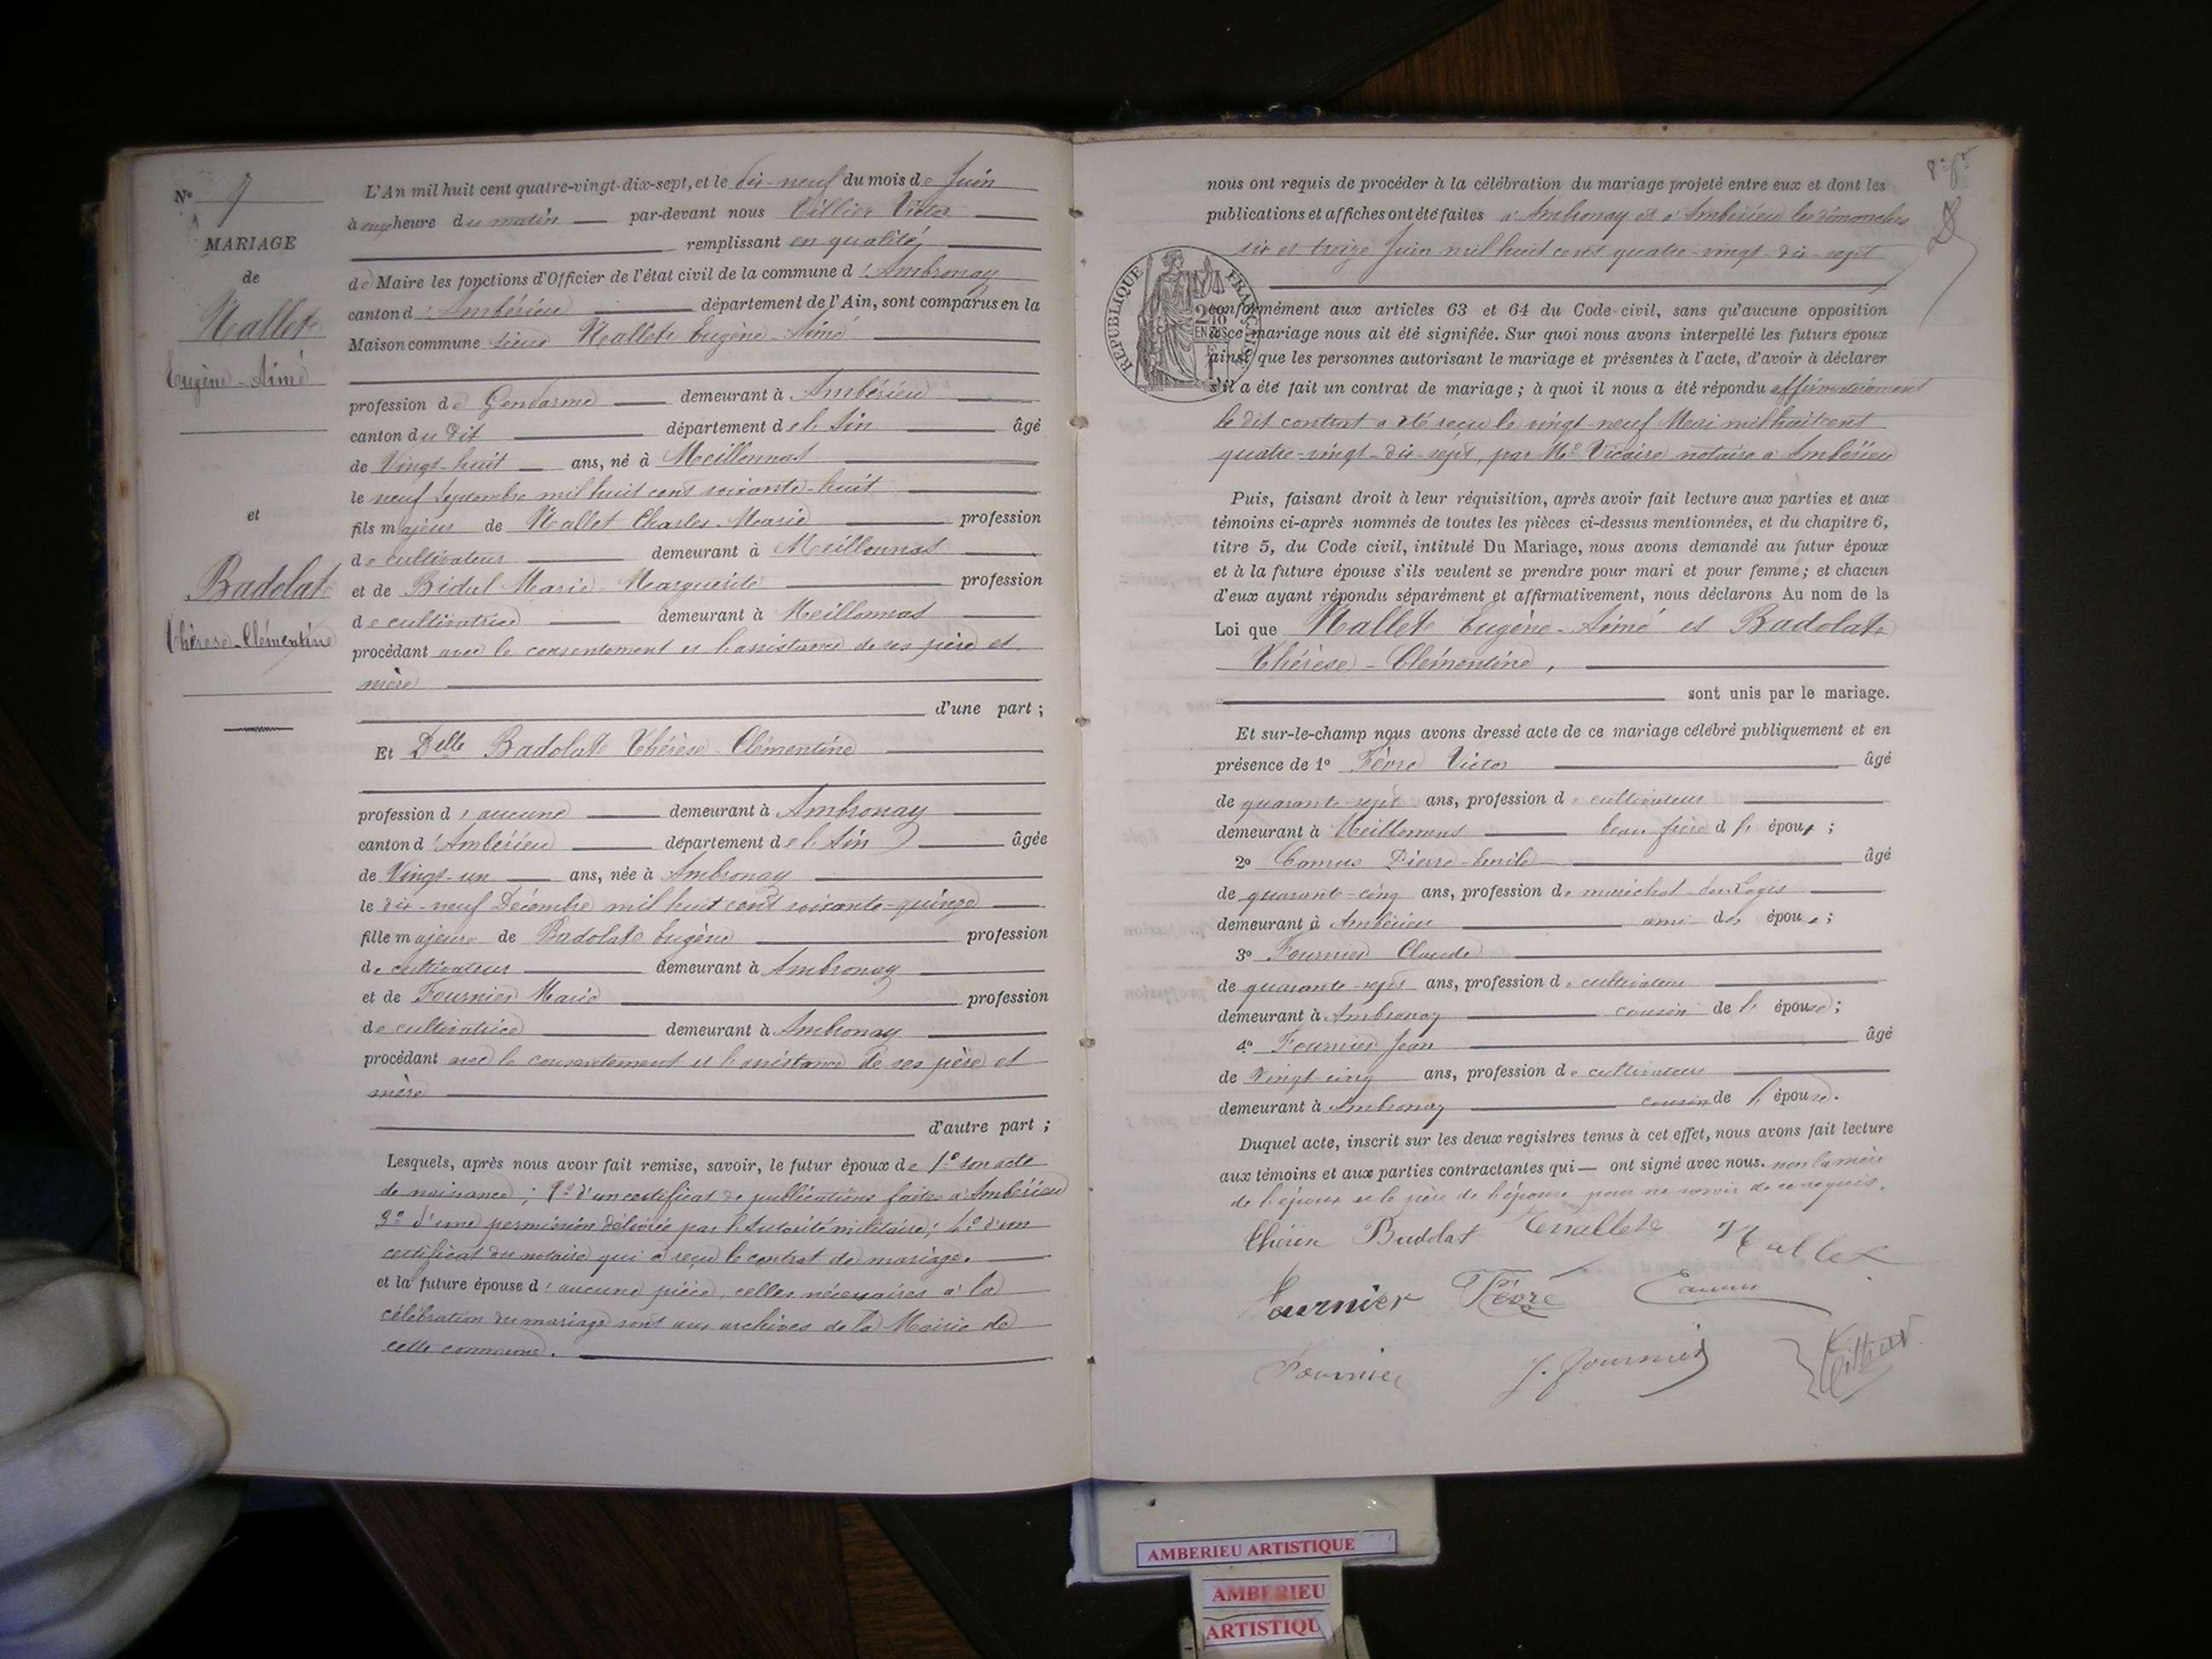 N° 7
MARIAGE
de
Mallet
Eugène-Aimé
et
Badolat
Thérèse-Clémentine
L'An mil huit cent quatre-vingt-dix-sept, et le dix-neuf du mois de Juin
à onze heure du matin par-devant nous Tillier Victor
remplissant en qualité
de Maire les fonctions d'Officier de l'état civil de la commune d'Ambronay
canton d'Ambérieu département de l'Ain, sont comparus en la
Maison commune sieur Mallet Eugène-Aimé
profession de Gendarme demeurant à Ambérieu
canton du dit département de l'Ain âgé
de Vingt-huit ans, né à Meillonnas
le neuf Septembre mil huit cent soixante-huit
fils majeur de Mallet Charles-Marie profession
de cultivateur demeurant à Meillonnas
et de Bidul Marie-Marguerite profession
de cultivatrice demeurant à Meillonnas
procédant avec le consentement et l'assistance de ses père et
mère
d'une part ;
Et Delle Badolat Thérèse-Clémentine
profession d'aucune demeurant à Ambronay
canton d'Ambérieu département de l'Ain âgée
de Vingt-un ans, née à Ambronay
le dix-neuf Décembre mil huit cent soixante-quinze
fille majeure de Badolat Eugène profession
de cultivateur demeurant à Ambronay
et de Fournier Marie profession
de cultivatrice demeurant à Ambronay
procédant avec le consentement et l'assistance de ses père et
mère
d'autre part ;
Lesquels, après nous avoir fait remise, savoir, le futur époux de 1° son acte
de naissance ; 2° d'un certificat de publications faites à Ambérieu
3° d'une permission délivrée par l'Autorité militaire ; 4° d'un
certificat du notaire qui a reçu le contrat de mariage.
et la future épouse d'aucune pièce, celles nécessaires à la
célébration du mariage sont aux archives de la Mairie de
cette commune.
nous ont requis de procéder à la célébration du mariage projeté entre eux et dont les
publications et affiches ont été faites à Ambronay et à Ambérieu les dimanches
six et treize Juin mil huit cent quatre-vingt-dix-sept
RÉPUBLIQUE FRANÇAISE
conformément aux articles 63 et 64 du Code civil, sans qu'aucune opposition
à ce mariage nous ait été signifiée. Sur quoi nous avons interpellé les futurs époux
ainsi que les personnes autorisant le mariage et présentes à l'acte, d'avoir à déclarer
s'il a été fait un contrat de mariage ; à quoi il nous a été répondu affirmativement
le dit contrat a été reçu le vingt-neuf Mai mil huit cent
quatre-vingt-dix-sept, par Me Vicaire notaire à Ambérieu
Puis, faisant droit à leur réquisition, après avoir fait lecture aux parties et aux
témoins ci-après nommés de toutes les pièces ci-dessus mentionnées, et du chapitre 6,
titre 5, du Code civil, intitulé Du Mariage, nous avons demandé au futur époux
et à la future épouse s'ils veulent se prendre pour mari et pour femme ; et chacun
d'eux ayant répondu séparément et affirmativement, nous déclarons Au nom de la
Loi que Mallet Eugène-Aimé et Badolat
Thérèse-Clémentine,
sont unis par le mariage.
Et sur-le-champ nous avons dressé acte de ce mariage célébré publiquement et en
présence de 1° Fèvre Victor âgé
de quarante-sept ans, profession de cultivateur
demeurant à Meillonnas beau frère de l'époux ;
2° Camus Pierre-Emile âgé
de quarante-cinq ans, profession de maréchal-des-Logis
demeurant à Ambérieu ami des époux ;
3° Fournier Claude
de quarante-sept ans, profession de cultivateur
demeurant à Ambronay cousin de l'épouse ;
4° Fournier Jean âgé
de vingt-cinq ans, profession de cultivateur
demeurant à Ambronay cousin de l'épouse.
Duquel acte, inscrit sur les deux registres tenus à cet effet, nous avons fait lecture
aux témoins et aux parties contractantes qui ont signé avec nous. non la mère
de l'époux et le père de l'épouse pour ne savoir de ce requis.
Badolat E Mallet Mallet
Fournier Fèvre Camus
Fournier J. Fournier
AMBERIEU ARTISTIQUE
AMBERIEU
ARTISTIQU